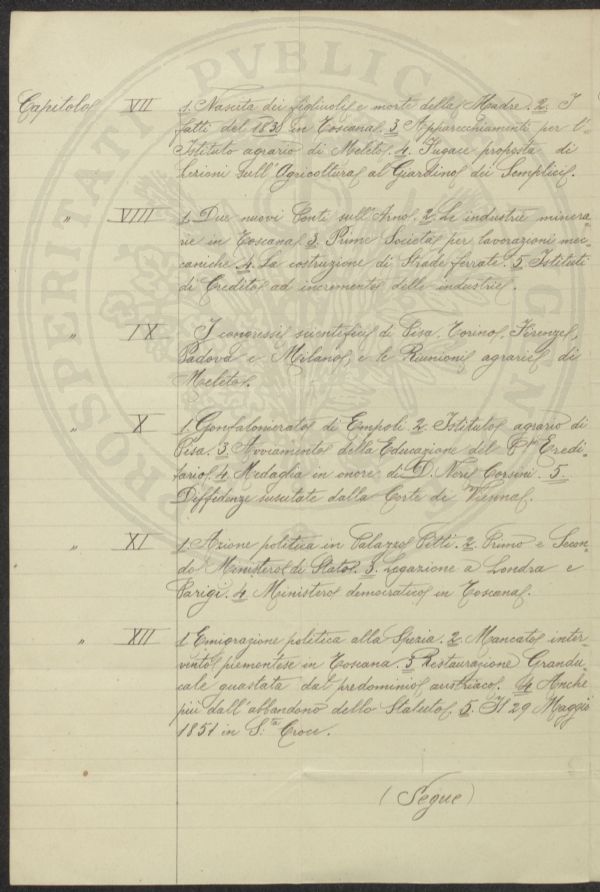 PVBLICAE
PROSPERITATI
Capitolo VII 1. Nascita dei figliuoli e morte della Madre. 2. I
fatti del 1831 in Toscana. 3. Apparecchiamenti per l'
Istituto agrario di Meleto. 4. Fugace proposta di
Lezioni sull'Agricoltura al Giardino dei Semplici.
" VIII 1. Due nuovi Ponti sull'Arno. 2. Le industrie minera-
rie in Toscana. 3. Prime Società per lavorazioni mec-
caniche. 4. La costruzione di Strade ferrate. 5. Istituti
di Credito ad incremento delle industrie.
" IX I congressi scientifici di Pisa, Torino, Firenze,
Padova e Milano, e le Riunioni agrarie di
Meleto.
" X 1. Gonfalonierato di Empoli 2. Istituto agrario di
Pisa. 3. Avviamento della Educazione del Pr. Eredi-
tario. 4. Medaglia in onore di D. Neri Corsini. 5.
Diffidenze suscitate dalla Corte di Vienna.
" XI 1. Azione politica in Palazzo Pitti. 2. Primo e Secon-
do Ministero di Stato. 3. Legazione a Londra e
Parigi. 4. Ministero democratico in Toscana.
" XII 1. Emigrazione politica alla Spezia. 2. Mancato inter-
vento piemontese in Toscana. 3 Restaurazione Grandu-
cale guastata dal predominio austriaco. 4 Anche
più dall'abbandono dello Statuto. 5. Il 29 Maggio
1851 in S.ta Croce.
(Segue)